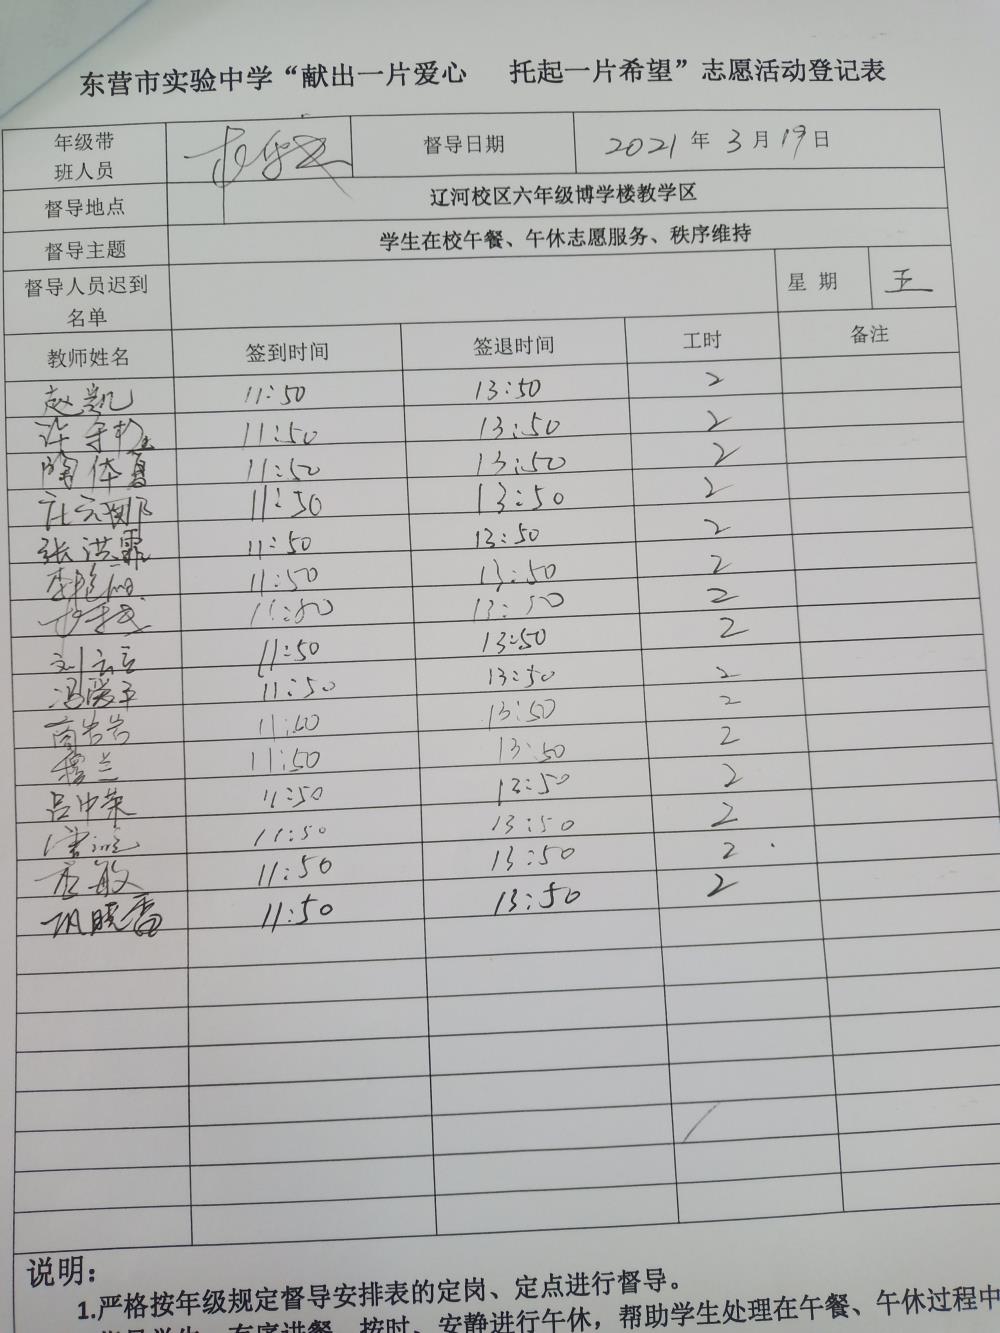 东营市实验中学“献出一片爱心 托起一片希望”志愿活动登记表
年级带班人员 督导日期 2021年3月19日
督导地点 辽河校区六年级博学楼教学区
督导主题 学生在校午餐、午休志愿服务、秩序维持
督导人员迟到名单 星期 五
教师姓名 签到时间 签退时间 工时 备注
赵凯 11:50 13:50 2
11:50 13:50 2
11:50 13:50 2
11:50 13:50 2
张洪霏 11:50 13:50 2
李艳丽 11:50 13:50 2
11:50 13:50 2
刘云云 11:50 13:50 2
冯爱平 11:50 13:50 2
商岩岩 11:50 13:50 2
穆兰 11:50 13:50 2
吕中荣 11:50 13:50 2
11:50 13:50 2
孟敏 11:50 13:50 2
巩晓雪 11:50 13:50 2
说明：
1.严格按年级规定督导安排表的定岗、定点进行督导。
有序进餐、按时、安静进行午休，帮助学生处理在午餐、午休过程中